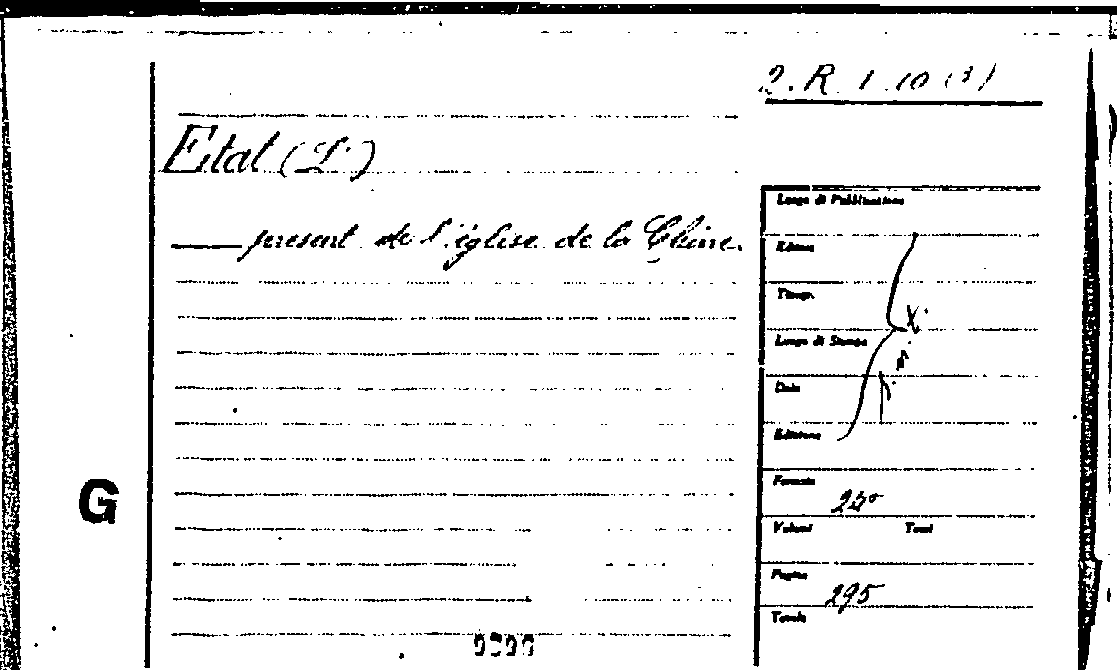 2. R. 1. 10 (3)
Etat (L')
— present de l'église de la Chine.
Luogo di Pubblicazione
Editore
Tipogr.
Luogo di Stampa
Data
Edizione
Formato
Volumi Tomi
Pagine 295
Totale
G